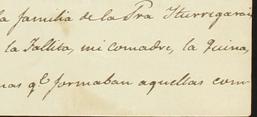 la familia de la Sra Iturrigarai
la Tallita, mi comadre, la Quina,
mas qe formaban aquellas com